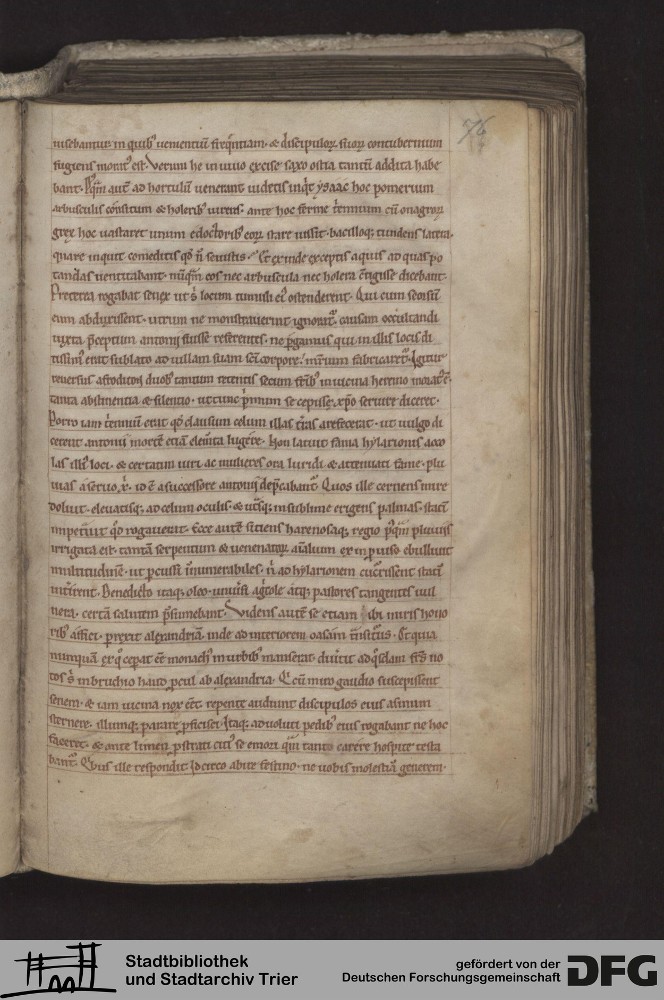 76
nisebamur in quib' uenientiū freq̄ntiam · & discipulorꝝ suorꝝ contubernium
fugiens morat' est. Verum he in uiuo excise saxo ostia tantū addita habe
bant. P̄qm̄ aut̄ ad hortulū uenerunt uidetis inq̄t ysaac hoc pomerium
arbusculis consitum & holerib' uirens · ante hoc ferme triennium cū onagrorꝝ
grex hoc uastaret unum e doctorib' eorꝝ stare iussit · baculoq; tundens latera ·
quare inquit comeditis qd̄ n̄ seuistis · Et exinde exceptis aquis ad quas po
tandas uentitabant · nūq̄m eos nec arbuscula nec holera c̄tigisse dicebant ·
Preterea rogabat senex ut s̄ locum tumuli ei' ostenderent · Qui cum seorsū
eum abduxissent · utrum ne monstrauerint ignorat' · causam occultandi
iuxta p̄ceptum antonii fuisse referentes · ne p̄gamius qui in illis locis di
tissim' erat sublato ad uillam suam sc̄i corpore · m̄rium fabricaret' · Igitur
reuersus afroditon duob' tantum retentis secum fr̄ib' in uicina heremo morat' ē ·
tanta abstinentia & silentio · ut tunc p̄mum se cepisse xp̄o seruire diceret ·
Porro iam t̄ennium erat qd̄ clausum celum illas t̄ras arefecerat · ut uulgo di
cerent antonii mortē etiā elem̄ta lugere · Non latuit fama hylarionis acco
las illi' loci · & certatim uiri ac mulieres ora luridi & attenuati fame · plu
uias a seruo · x̄ · id ē a successore antonii dep̄cabant' · Quos ille cernens mire
doluit · eleuatisq; ad celum oculis · & ut̄sq; in sublime erigens palmas · statī
impetrauit qd̄ rogauerat · Ecce autē sitiens harenosaq; regio p̄q̄m pluuiis
irrigata est · tantā serpentium & uenenatorꝝ aīalium ex inprouiso ebulliuit
multitudinē · ut p̄cussi īnumerabiles · n̄ ad hylarionem cucr̄issent statī
int̄irent · Benedicto itaq; oleo · uniu̅si ag̅cole atq; pastores tangentes uul
nera · certā salutem p̄sumebant · Videns autē se etiam ibi miris hono
rib' affici · prexit alexandriā inde ad interiorem oasim t̄nsiturus · Et quia
nunquā ex q̄ ceperat eē monach' in urbib' manserat · diu̅tit ad q̄sdam fr̄s no
tos s̄ in bruchio haud p̄cul ab alexandria · Q cū miro gaudio suscepissent
senem · & iam uicina nox eēt · repente audiunt discipulos eius asinum
sternere · illumq; parare p̄ficisci · Itaq; aduoluti pedib' eius rogabant ne hoc
faceret · & ante limen p̄strati citi' se emori quā tanto carere hospite testa
bant' · Quis ille respondit · Idcirco abire festino · ne uobis molestiā generem ·
Stadtbibliothek
und Stadtarchiv Trier
gefördert von der
Deutschen Forschungsgemeinschaft
DFG